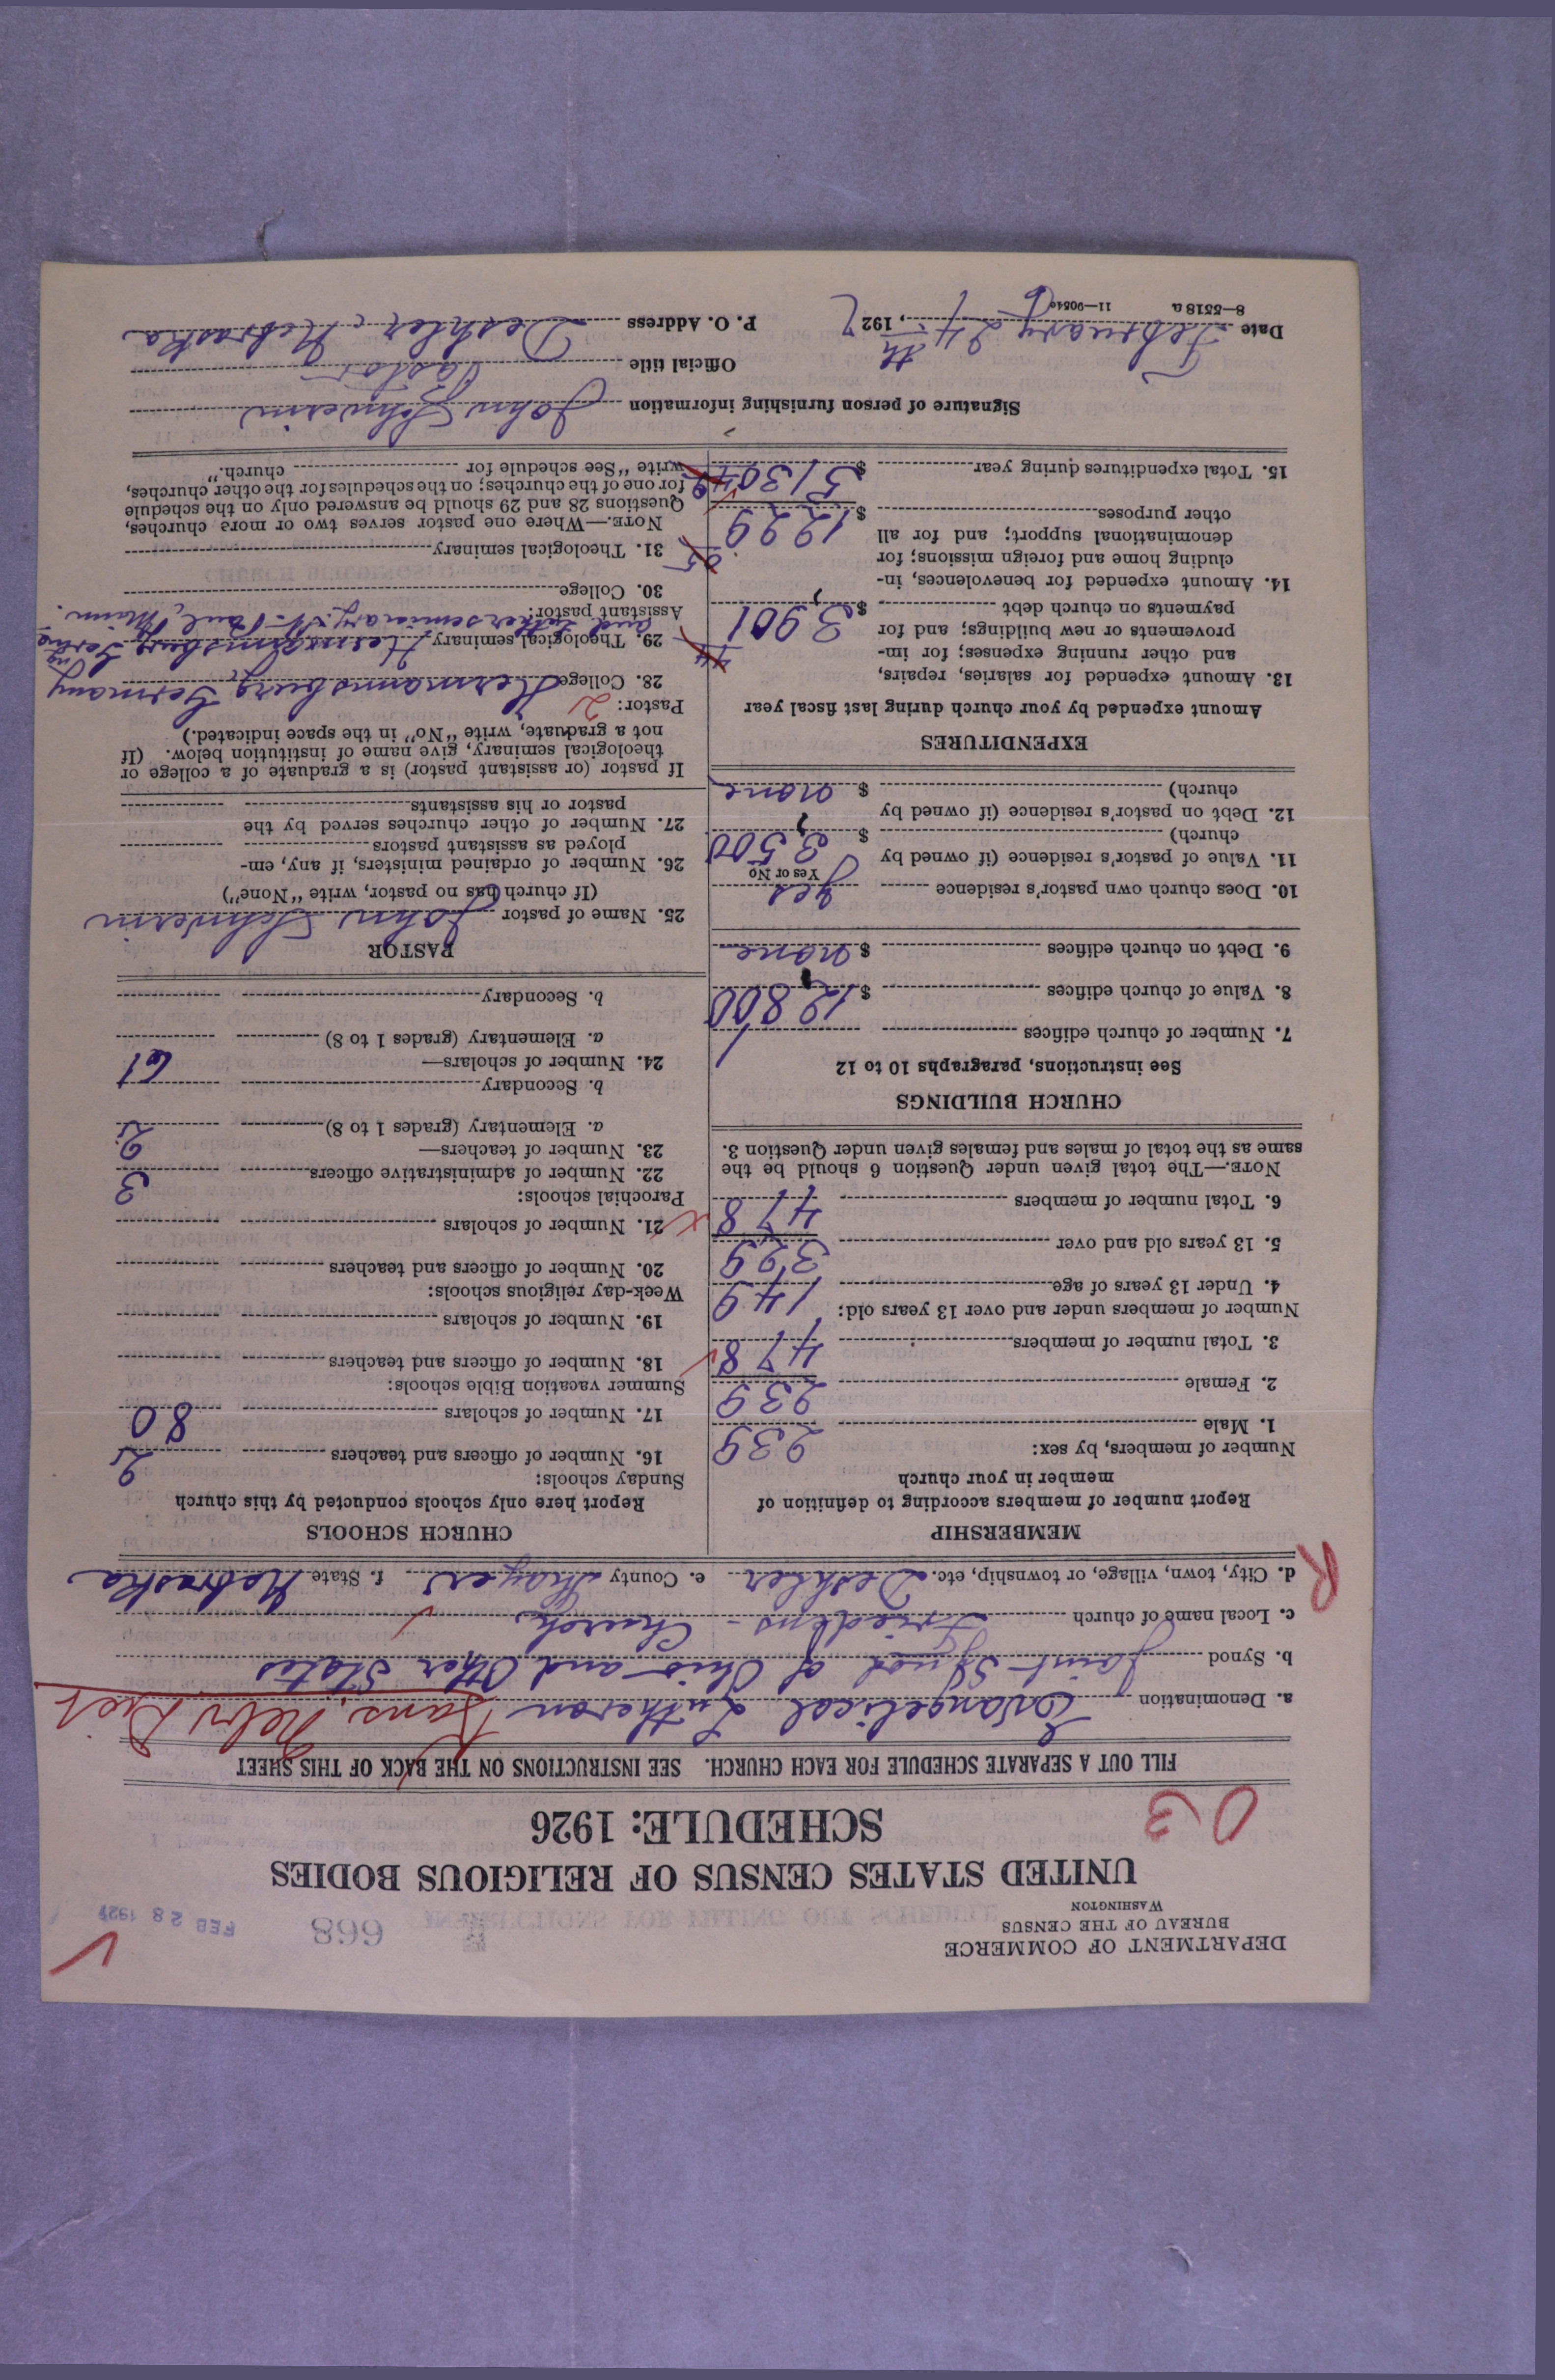 DEPARTMENT OF COMMERCE
BUREAU OF THE CENSUS
WASHINGTON
668
FEB 28 1927
UNITED STATES CENSUS OF RELIGIOUS BODIES
SCHEDULE: 1926
03
FILL OUT A SEPARATE SCHEDULE FOR EACH CHURCH. SEE INSTRUCTIONS ON THE BACK OF THIS SHEET
a. Denomination Evangelical Lutheran Kans. Nebr Dist
b. Synod Joint Synod of Ohio and Other States
c. Local name of church Friedens - Church
d. City, town, village, or township, etc. Deshler e. County Thayer f. State Nebraska
R
MEMBERSHIP
Report number of members according to definition of
member in your church
Number of members, by sex:
1. Male 239
2. Female 239
3. Total number of members 478
Number of members under and over 13 years old:
4. Under 13 years of age 149
5. 13 years old and over 329
6. Total number of members 478
NOTE.—The total given under Question 6 should be the
same as the total of males and females given under Question 3.
CHURCH BUILDINGS
See instructions, paragraphs 10 to 12
7. Number of church edifices 1
8. Value of church edifices $ 12,800
9. Debt on church edifices $ none
10. Does church own pastor's residence yes
Yes or No
11. Value of pastor's residence (if owned by
church) $ 3,500
12. Debt on pastor's residence (if owned by
church) $ none
EXPENDITURES
Amount expended by your church during last fiscal year
13. Amount expended for salaries, repairs,
and other running expenses; for im-
provements or new buildings; and for
payments on church debt $ 3,901
14. Amount expended for benevolences, in-
cluding home and foreign missions; for
denominational support; and for all
other purposes $ 1229
15. Total expenditures during year $ 5130
CHURCH SCHOOLS
Report here only schools conducted by this church
Sunday schools:
16. Number of officers and teachers 2
17. Number of scholars 80
Summer vacation Bible schools:
18. Number of officers and teachers
19. Number of scholars
Week-day religious schools:
20. Number of officers and teachers
21. Number of scholars
Parochial schools:
22. Number of administrative officers 3
23. Number of teachers—
a. Elementary (grades 1 to 8) 2
b. Secondary
24. Number of scholars—
a. Elementary (grades 1 to 8) 61
b. Secondary
PASTOR
25. Name of pastor John Schwerin
(If church has no pastor, write "None")
26. Number of ordained ministers, if any, em-
ployed as assistant pastors
27. Number of other churches served by the
pastor or his assistants
If pastor (or assistant pastor) is a graduate of a college or
theological seminary, give name of institution below. (If
not a graduate, write "No" in the space indicated.)
Pastor: 2
28. College Hermannsburg Germany
29. Theological seminary Hermannsburg
and Luther seminary, St. Paul, Minn.
Assistant pastor:
30. College
31. Theological seminary
NOTE.—Where one pastor serves two or more churches,
Questions 28 and 29 should be answered only on the schedule
for one of the churches; on the schedules for the other churches,
write "See schedule for church."
Signature of person furnishing information John Schwerin
Official title Pastor
Date February 24th, 1927 P. O. Address Deshler, Nebraska
8—5518 a 11—9054